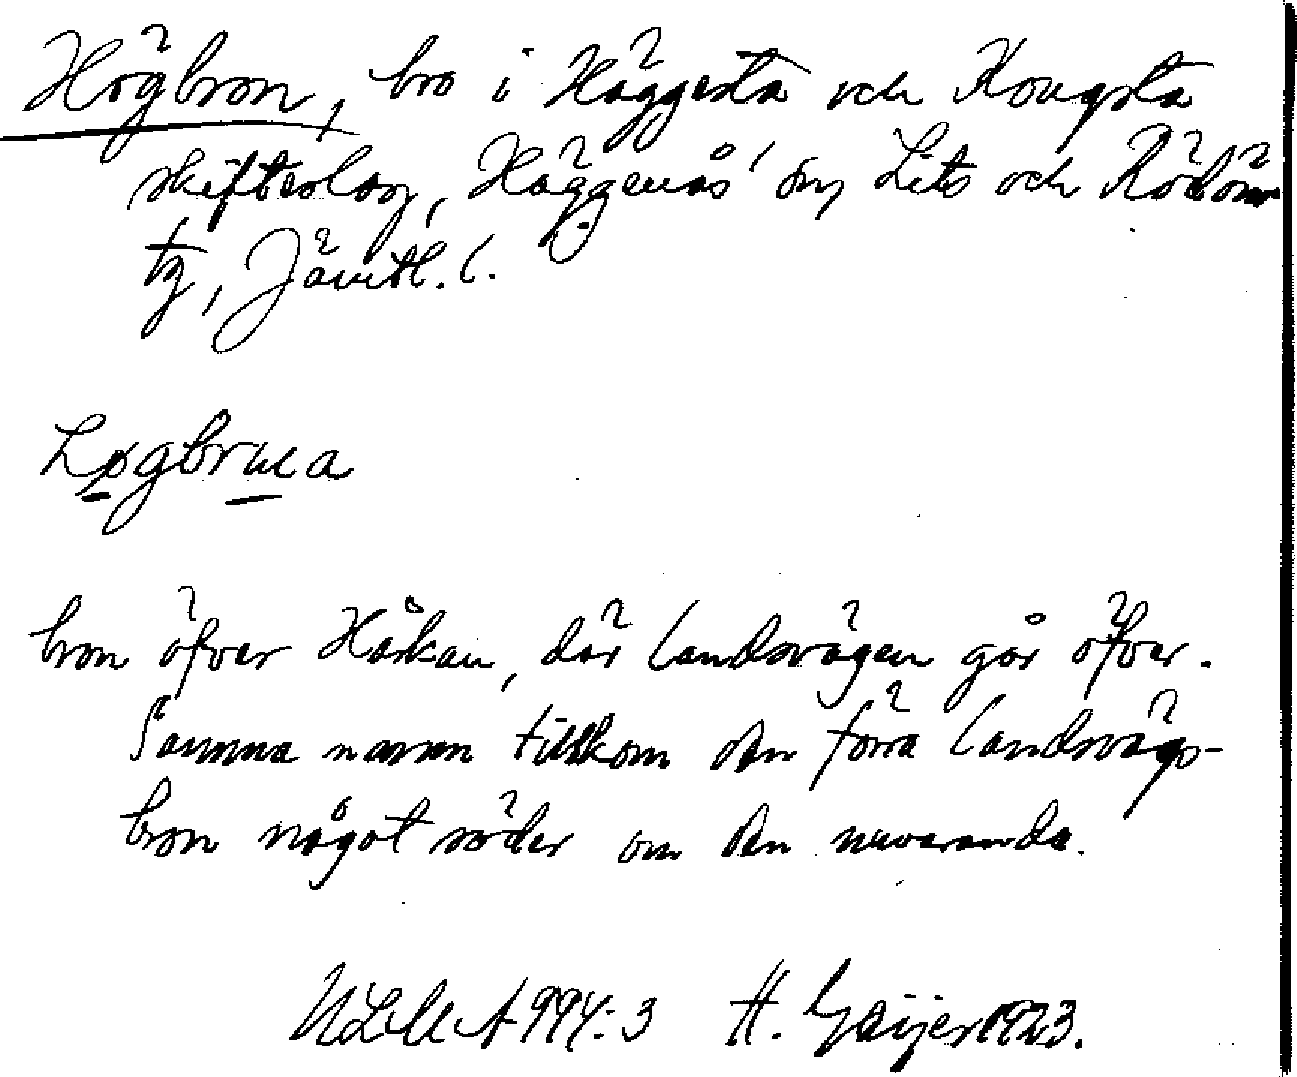 Högbron, bro i Häggesta och Kougsta
skifteslag, Häggenås' sn, Lits och Rödöns
tg, Jämtl. l.
bron öfver Hårkan, där landsvägen går öfver.
Samma namn tillkom den förra landsvägs-
bron något söder om den nuvarande.
ULMA 994:3 H. Geijer 1923.